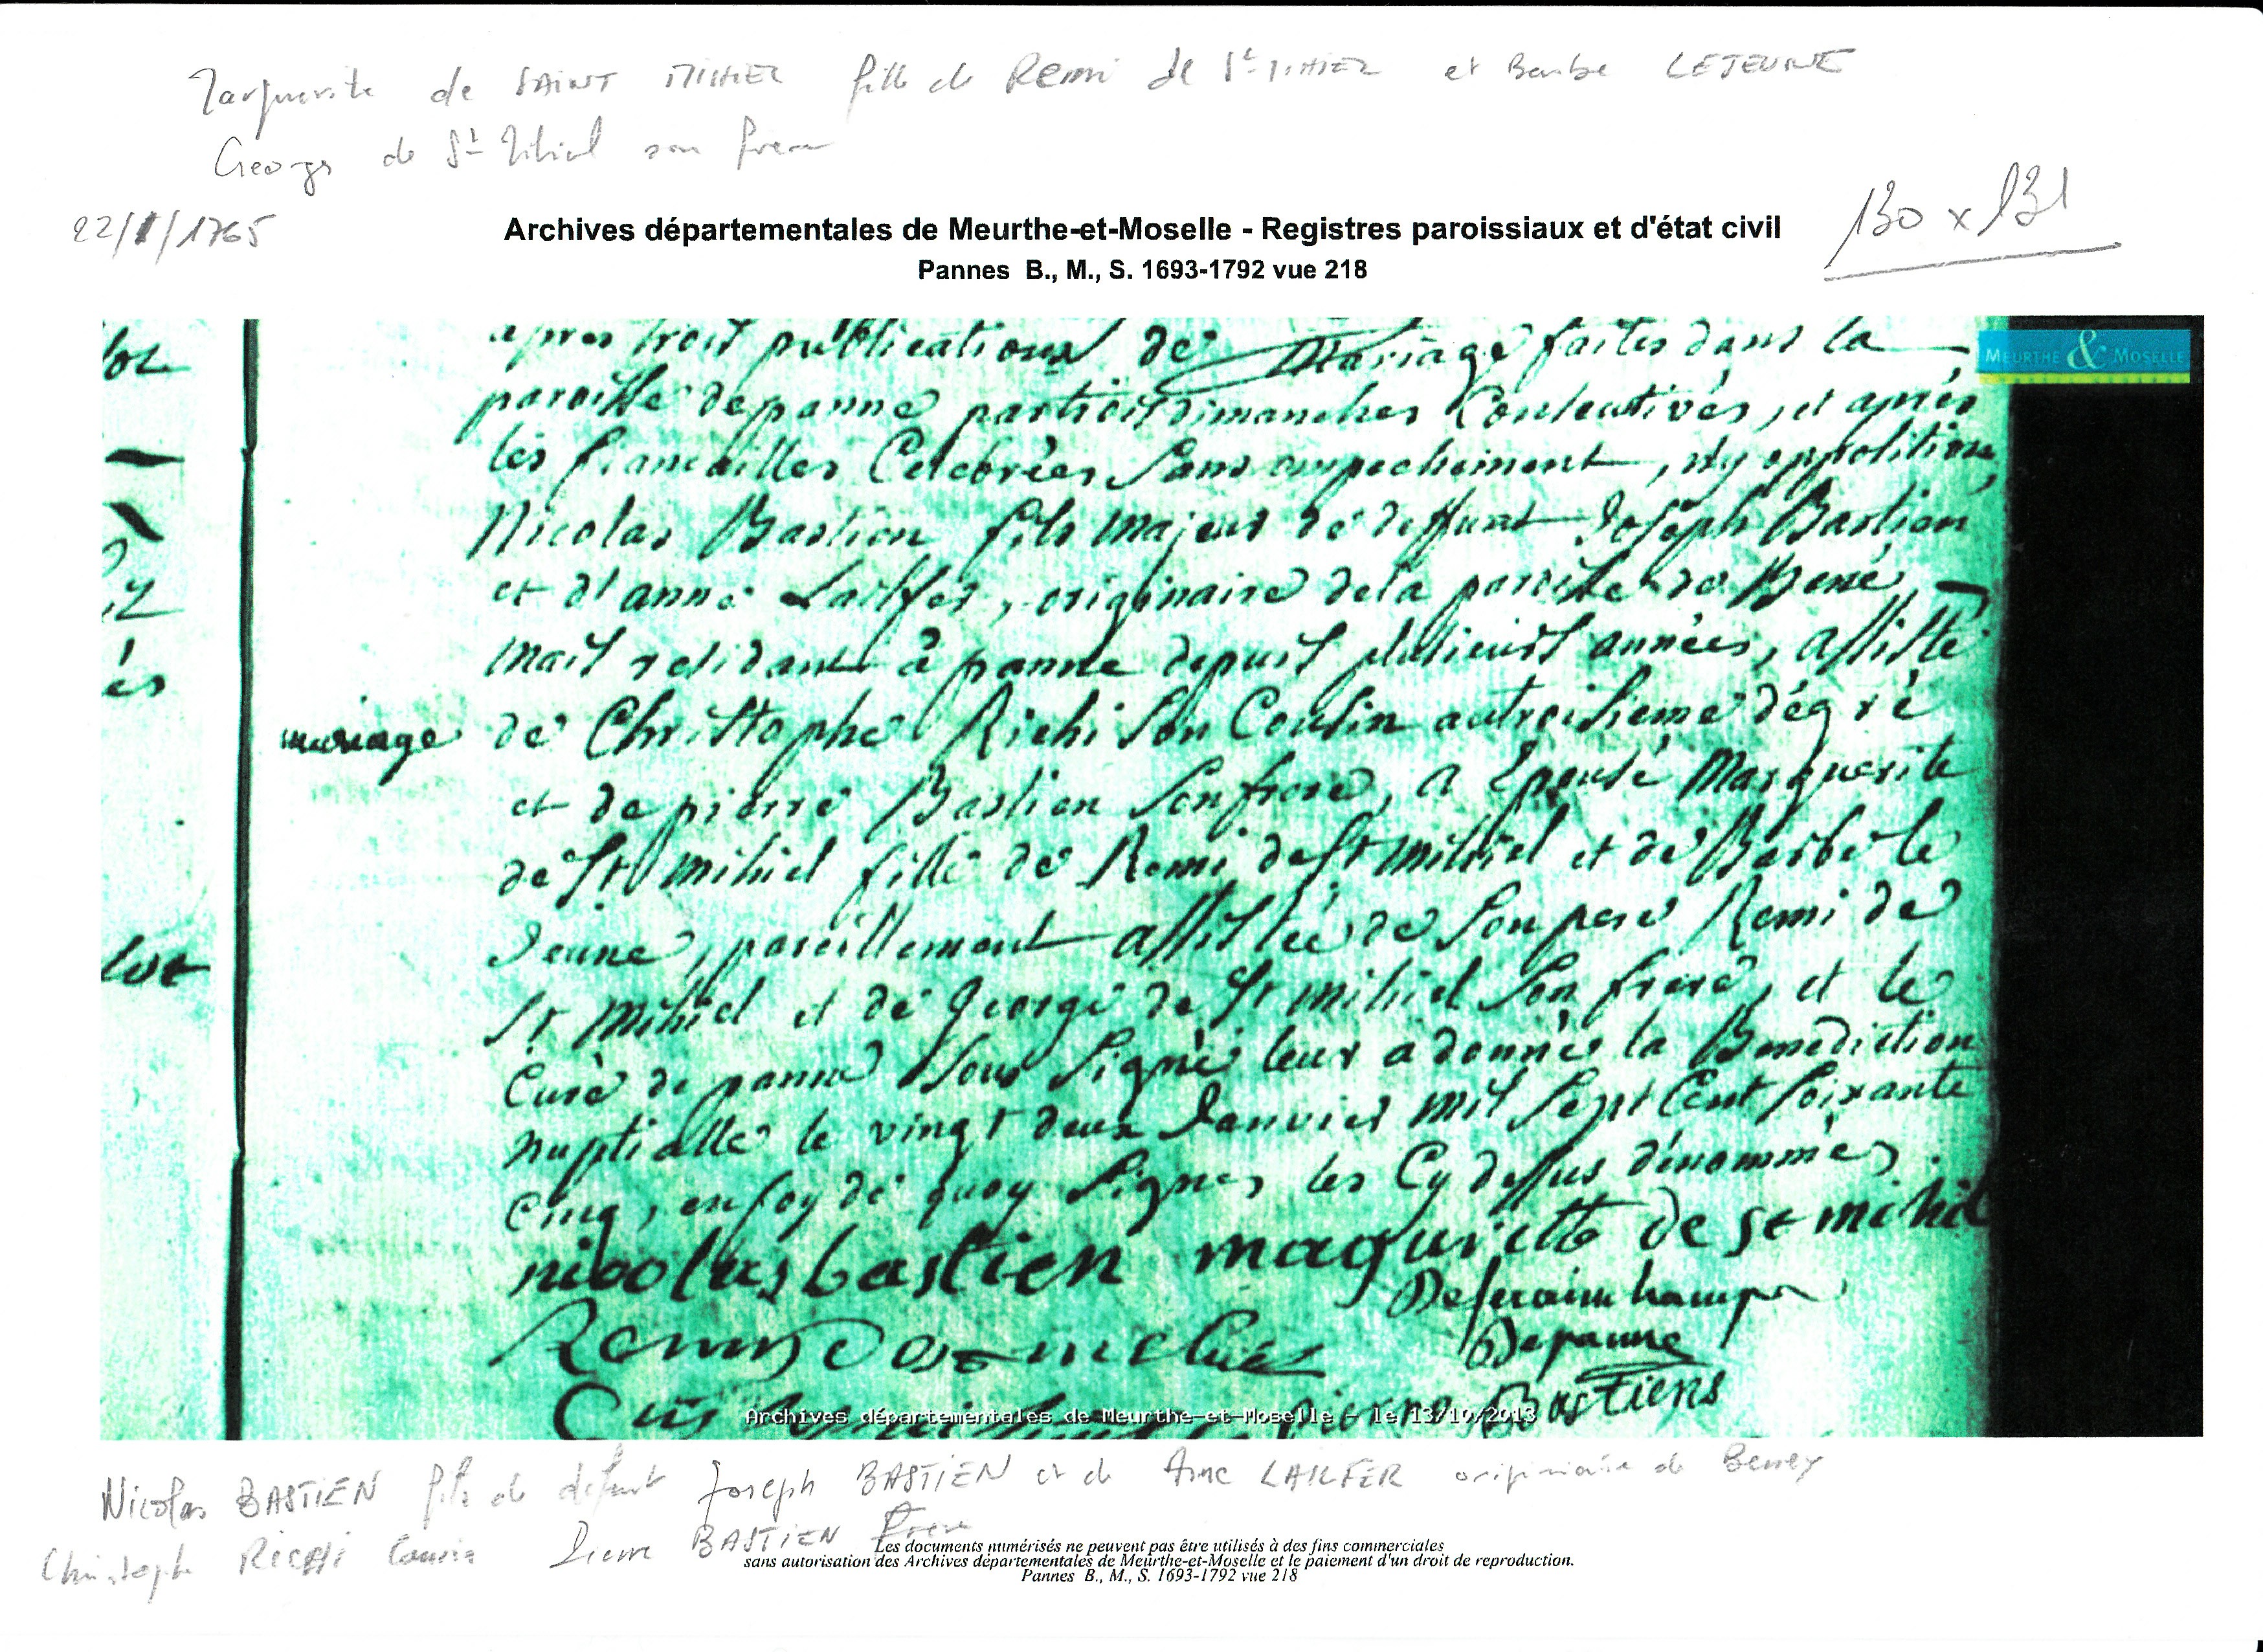 Marguerite de SAINT MIHIEL fille de Remi de St MIHIEL et Barbe LEJEUNE
George de St Mihiel son frere
22/1/1765
130 x 131
Archives départementales de Meurthe-et-Moselle - Registres paroissiaux et d'état civil
Pannes B., M., S. 1693-1792 vue 218
MEURTHE & MOSELLE
apres trois publications de Mariage faites dans la
paroisse de panne par trois dimanches Consecutives, et après
les fiancailles Celebrées sans empechement, ny opposition,
Nicolas Bastien fils majeur de deffunt Joseph Bastien
et d'anne Lailfer, originaire de la paroisse de Bené
mais residant à panne depuis plusieurs années, assisté
mariage
de Christophe Richi son Cousin au troisieme dégré
et de pierre Bastien son frere, a Epousé Marguerite
de St mihiel fille de Remi de St mihiel et de Barbe le
Jeune, pareillement assistée de son pere Remi de
St Mihiel et de George de St mihiel son frere, et le
Curé de panne sous signé leur a donnés la Benediction
nuptialle le vingt deux Janvier mil sept Cent soixante
Cinq, en foy de quoy signés les Cy dessus dénommés.
nicolas bastien maguritte de st mihil
Depanne
pierre Bastiens
Archives départementales de Meurthe-et-Moselle - le 13/10/2013
Nicolas BASTIEN fils de défunt Joseph BASTIEN et de Anne LAILFER originaire de Beney
Christophe RICHI Cousin Pierre BASTIEN Frere
Les documents numérisés ne peuvent pas être utilisés à des fins commerciales
sans autorisation des Archives départementales de Meurthe-et-Moselle et le paiement d'un droit de reproduction.
Pannes B., M., S. 1693-1792 vue 218